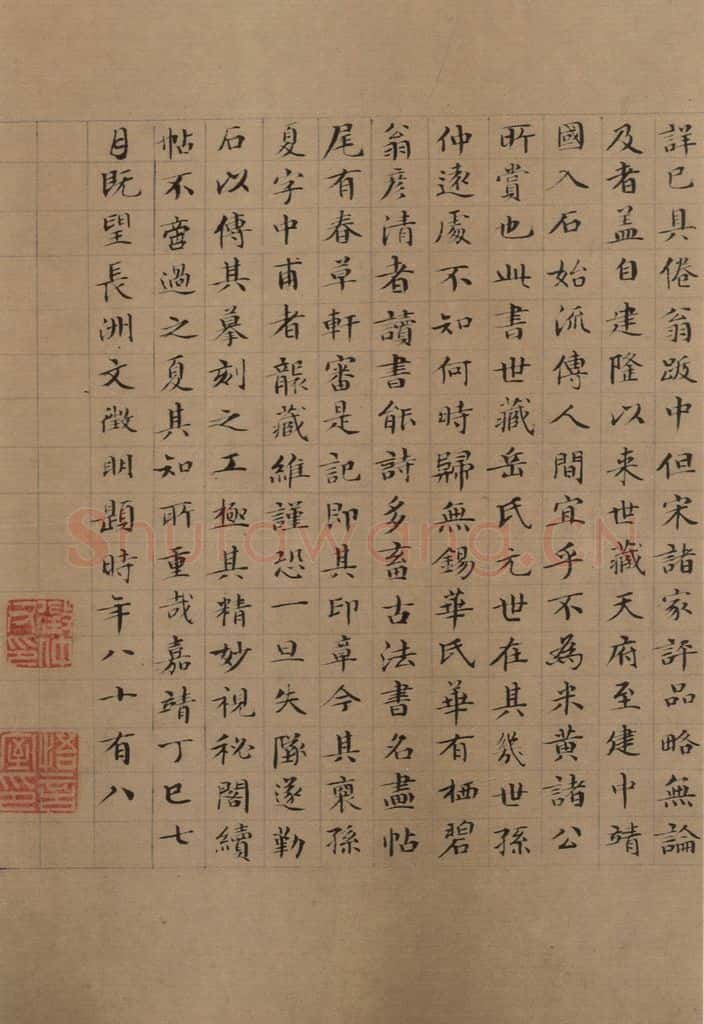 詳已具倦翁跋中但宋諸家評品略無論
及者盖自建隆以来世藏天府至建中靖
國入石始流傳人間宜乎不為米黄諸公
所賞也此書世藏岳氏元世在其幾世孫
仲遠處不知何時歸無錫華氏華有栖碧
翁彦清者讀書能詩多畜古法書名畫帖
尾有春草軒審是記即其印章今其裔孫
夏字中甫者襲藏維謹恐一旦失隊遂勒
石以傳其摹刻之工極其精妙視秘閣續
帖不啻過之夏其知所重哉嘉靖丁巳七
月既望長洲文徵明題時年八十有八
悟言室印
Shufawang.CN